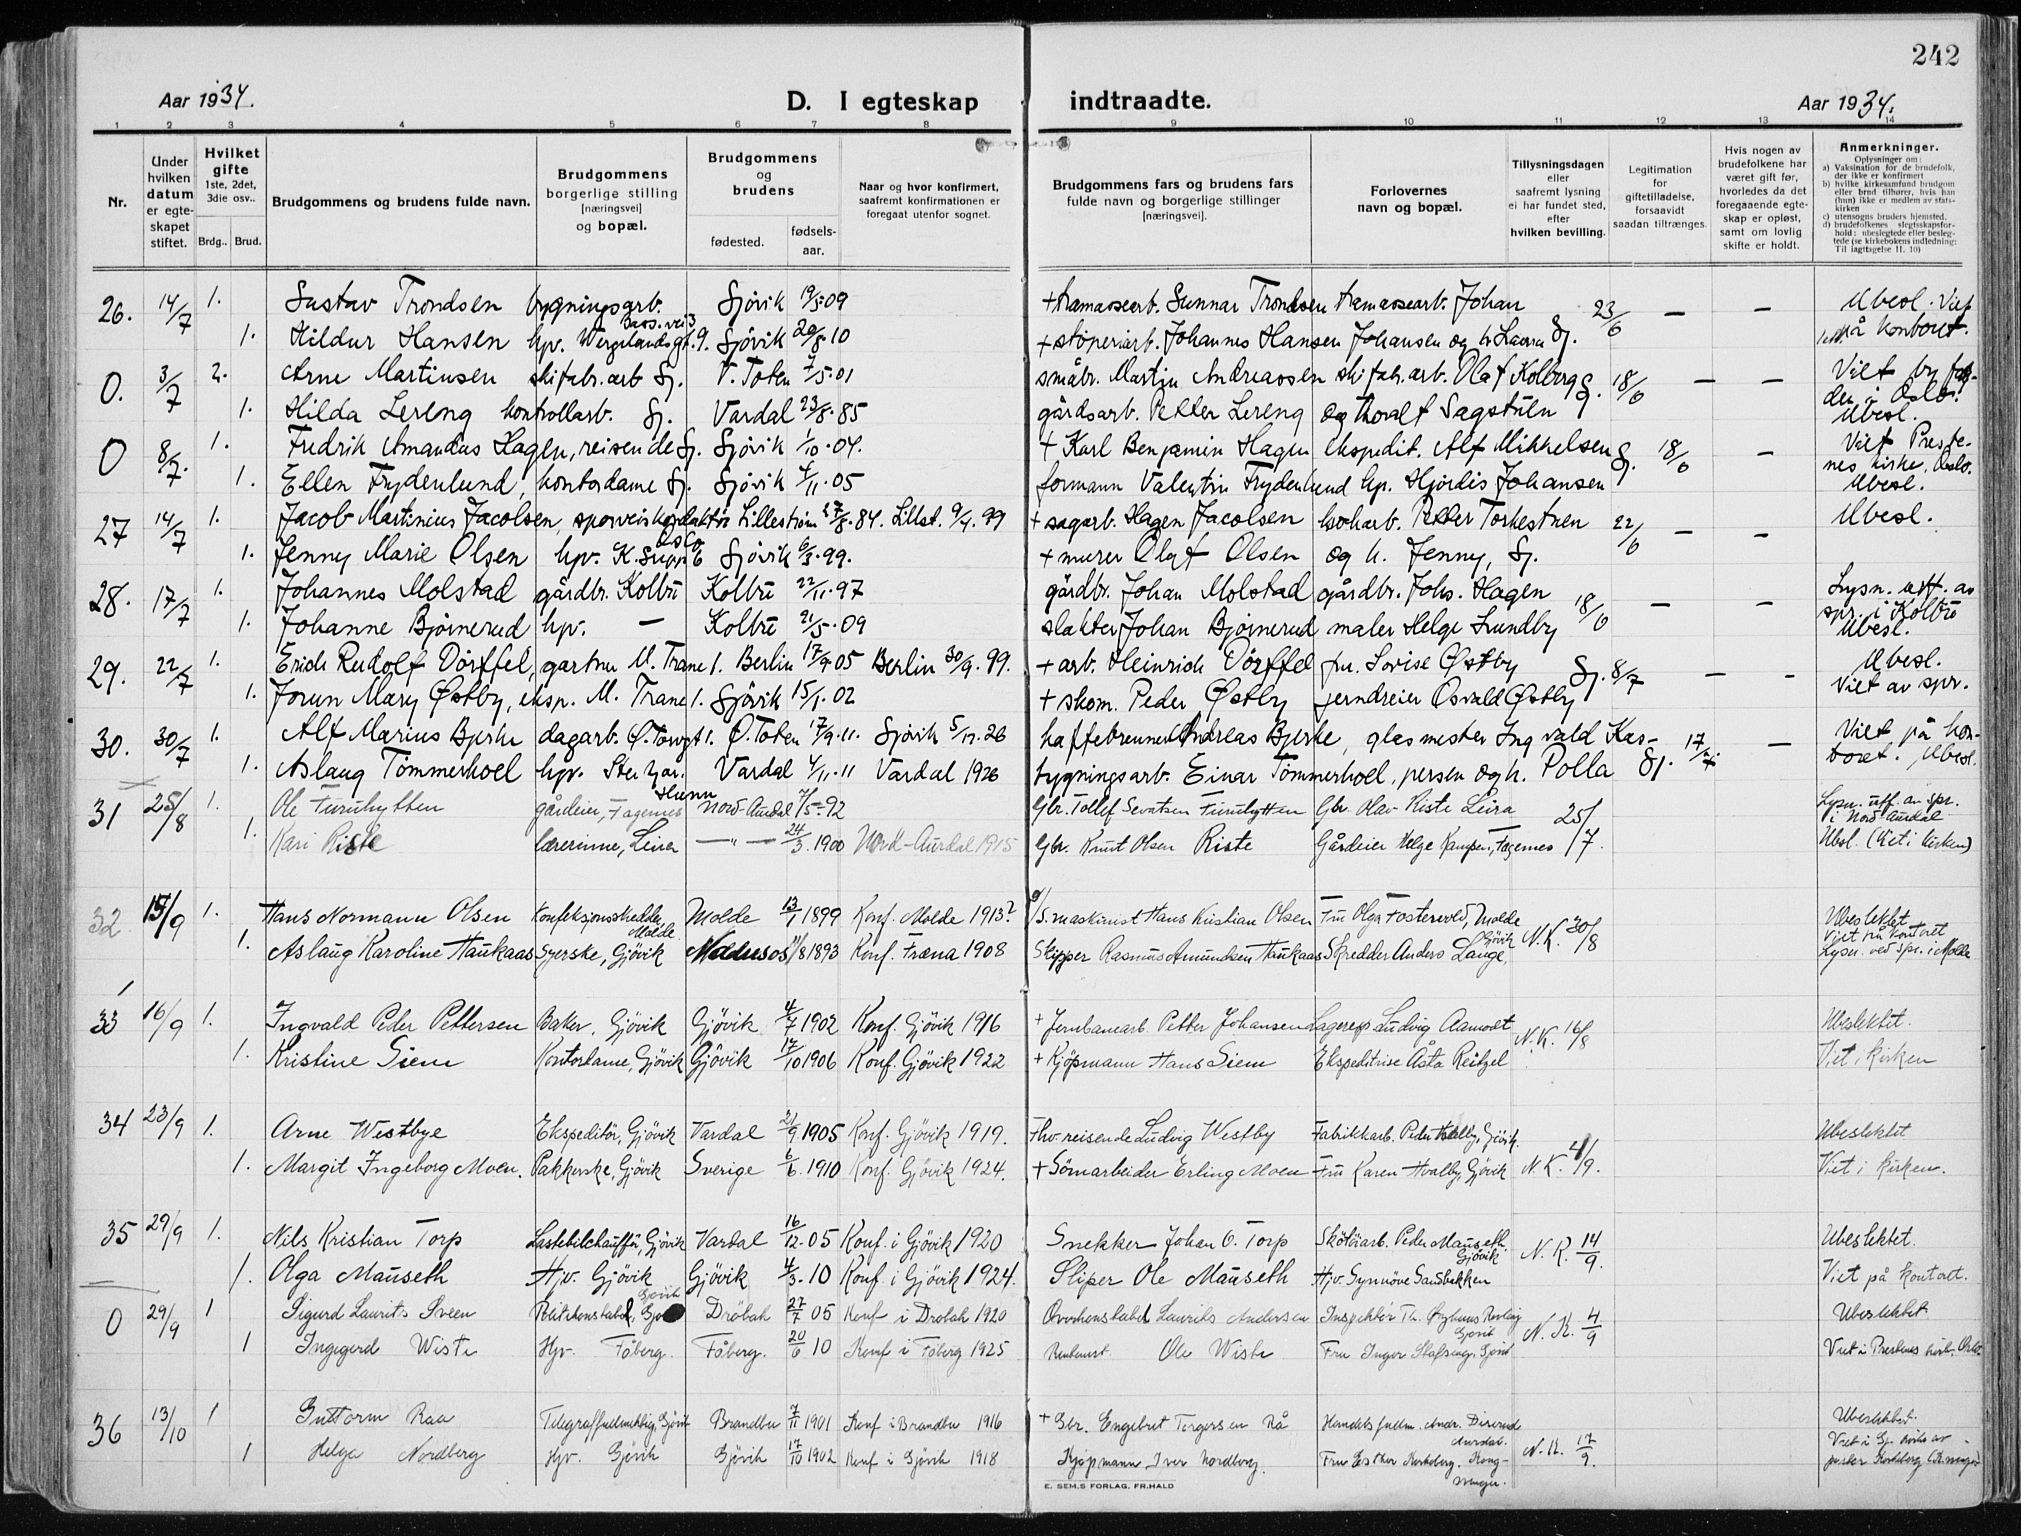 242
Aar 1934.
D. I egteskap indtraadte.
Aar 1934.
1 2 3 4 5 6 7 8 9 10 11 12 13 14
Nr.
Under hvilken datum er egte-skapet stiftet.
Hvilket gifte 1ste, 2det, 3die osv..
Brdg.. Brud.
Brudgommens og brudens fulde navn.
Brudgommens borgerlige stilling [næringsvei] og bopæl.
Brudgommens og brudens
fødested. fødsels-aar.
Naar og hvor konfirmert, saafremt konfirmationen er foregaat utenfor sognet.
Brudgommens fars og brudens fars fulde navn og borgerlige stillinger [næringsvei].
Forlovernes navn og bopæl.
Tillysningsdagen eller saafremt lysning ei har fundet sted, efter hvilken bevilling.
Legitimation for giftetilladelse, forsaavidt saadan tiltrænges.
Hvis nogen av brudefolkene har været gift før, hvorledes da det foregaaende egte-skap er opløst, samt om lovlig skifte er holdt.
Anmerkninger.
Oplysninger om:
a) Vaksination for de brudefolk, der ikke er konfirmert
b) hvilke kirkesamfund brudgom eller brud tilhører, hvis han (hun) ikke er medlem av stats-kirken
c) utensogns bruders hjemsted.
d) brudefolkenes slegtsskapsfor-hold: ubeslegtede eller besleg-tede (se kirkebokens indledning: Til iagttagelse II. 10)
26. 14/7 1. Gustav Trondsen bygningsarb. Gjøvik 19/5-09 + tramassearb. Gunnar Trondsen tramassearb. Johan 23/6 — — Ubesl. Viet
1. Hildur Hansen hpv. Wergelandsgt. 9. Gjøvik 20/8-10 + støperiarb. Johannes Hansen Johansen og h. Laura Gj. på kontoret.
0. 3/7 2. Arne Martinsen skifabr.arb Gj. V. Toten 7/5-01 småbr. Martin Andreassen skifabr.arb. Olaf Kolberg Gj. 18/6 — — Viet by fog-
1. Hilda Lereng kontrollarb. Gj. Vardal 23/8-85 gårdsarb. Petter Lereng og Thoralf Sagstuen den i Oslo. Ubesl.
0 8/7. 1. Fredrik Amandus Hagen, reisende Gj. Gjøvik 1/10-04. + Karl Benjamin Hagen ekspedit. Alf Mikkelsen Gj. 18/6 — Viet Preste-
1. Ellen Frydenlund, kontordame Gj. Gjøvik 4/11-05 formann Valentin Frydenlund hp. Hjördis Johansen nes kirke, Oslo. Ubesl.
27 14/7 1. Jacob Martinius Jacolsen, Oslo Lillestrøm 27/8-84. Lillst. 9/4. 99 + sagarb. Hagen Jacolsen Petter Torkestuen 22/6 — — Ubesl.
1. Jenny Marie Olsen hpv. Gjøvik 6/3-99. + murer Olaf Olsen og h. Jenny, Gj.
28. 17/7 1. Johannes Molstad gårdbr. Kolbu Kolbu 22/11-97 gårdbr. Johan Molstad gårdbr. Johs. Hagen 18/6 — — Lysn. utf. av
1. Johanne Bjørnerud hpv. — Kolbu 21/5-09 slakter Johan Bjørnerud maler Helge Lundby spr. i Kolbu Ubesl.
29. 22/7 1. Erich Rudolf Dörffel, gartner M. Trane 1. Berlin 17/9-05 Berlin 30/9. 99. + arb. Heinrich Dörffel fru. Lovise Østby Gj. 8/7 — - Ubesl.
1. Jorun Mary Østby, eksp. M. Trane 1. Gjøvik 15/1-02 + skom. Peder Østby jerndreier Osvald Østby Viet av spr.
30. 30/7 1. Alf Marius Bjerke dagarb. Ø. Torvgt 1. Ø. Toten 17/9-11. Gjøvik 5/12-26 kaffebrenner Andreas Bjerke, glasmester Ingvald Kas- 17/7. — Viet på kon-
1. Aslaug Tömmerhoel hpv. Hunn Vardal 4/11-11 Vardal 1926 bygningsarb. Einar Tömmerhoel, persen og h. Polla Gj. toret. Ubesl.
31 25/8 1. Ole Furuhytten gårdeier, Fagernes Nord-Aurdal 7/5-92 Gbr. Tollef Sevatsen Furuhytten Gbr. Olav Riste Leira 25/7. Lysn. utf. av spr. i Nord Aurdal
1. Kari Riste lærerinne, Leira —"— 24/3. 1900 Nord-Aurdal 1915 Gbr. Knut Olsen Riste Gårdeier Helge Kampen, Fagernes Ubesl. (Viet i kirken)
32 15/9 1. Hans Normann Olsen Konfeksjonsskredder Molde Molde 13/1 1899 Konf. Molde 1913? S.maskinist Hans Kristian Olsen Fru Olga Fostervold, Molde N.K. 30/8 Ubeslektet
1. Aslaug Karoline Haukaas Syerske, Gjövik 11/8 1893 Konf. Fræna 1908 Skipper Rasmus Amundsen Haukaas Skredder Anders Lange, Gjövik Viet på Kontoret Lysn. ved spr. i Molde
33 16/9 1. Ingvald Peder Pettersen Baker, Gjövik Gjövik 4/7 1902 Konf. Gjövik 1916 + Jernbanearb. Petter Johansen Lagereksp Ludvig Aamodt N.K. 16/8 Ubeslektet.
1. Kristine Siem Kontordame, Gjövik Gjövik 17/10 1906 Konf. Gjövik 1922 + Kjöpmann Hans Siem Ekspeditrise Åsta Reitzel Viet i Kirken
34 23/9 1. Arne Westbye Ekspeditör, Gjövik Vardal 21/9 1905 Konf. Gjövik 1919. + hv. reisende Ludvig Westby Fabrikkarb. Peder Hvalby, Gjövik. N.K. 4/9. Ubeslektet
1. Margit Ingeborg Moen. Pakkerske, Gjövik Sverige 6/6. 1910 Konf. Gjövik 1924. + Sömarbeider Erling Moen Fru Karen Hvalby, Gjövik Viet i Kirken.
35 29/9 1. Nils Kristian Torp Lastebilchauffør, Gjövik Vardal 16/12-05 Konf. i Gjövik 1920 Snekker Johan O. Torp Skötöiarb. Peder Mauseth. Gjövik N.K. 14/9. Ubeslektet.
1. Olga Mauseth Hjv. Gjövik Gjövik 4/3-10 Konf. i Gjövik 1924. Sliper Ole Mauseth Hjv. Synnöve Sandbakken Viet på Kontoret.
0 29/9 1 Sigurd Laurits Sveen Politikonstabel, Gjövik Dröbak 27/7 05 Konf i Drobak 1920 Overkonstabel Laurits Andersen Inspektör Th. N.K. 4/9 Ubeslektet.
1 Ingegerd Wiste Hjv. Fåberg. Fåberg. 20/6 10 Konf i Fåberg 1925 Ole Wiste Fru Inger Gjövik Viet i Prestenes kirke. Oslo.
36 13/10 1 Guttorm Raa Telegraffullmektig, Gjövik Brandbu 7/11 1901 Konf i Brandbu 1916 + Gbr. Engebret Torgersen Rå Handelsfullm. Andr. Aurdal. N.K. 17/9. Ubeslektet.
1 Helga Nordberg Hjv. Gjövik Gjövik 17/10 1902 Konf i Gjövik 1918 Kjöpmann Iver Nordberg. Fru Esther Korbberg. Kongsvinger. Viet i Gj. kirke av
E. SEM.S FORLAG, FR.HALD